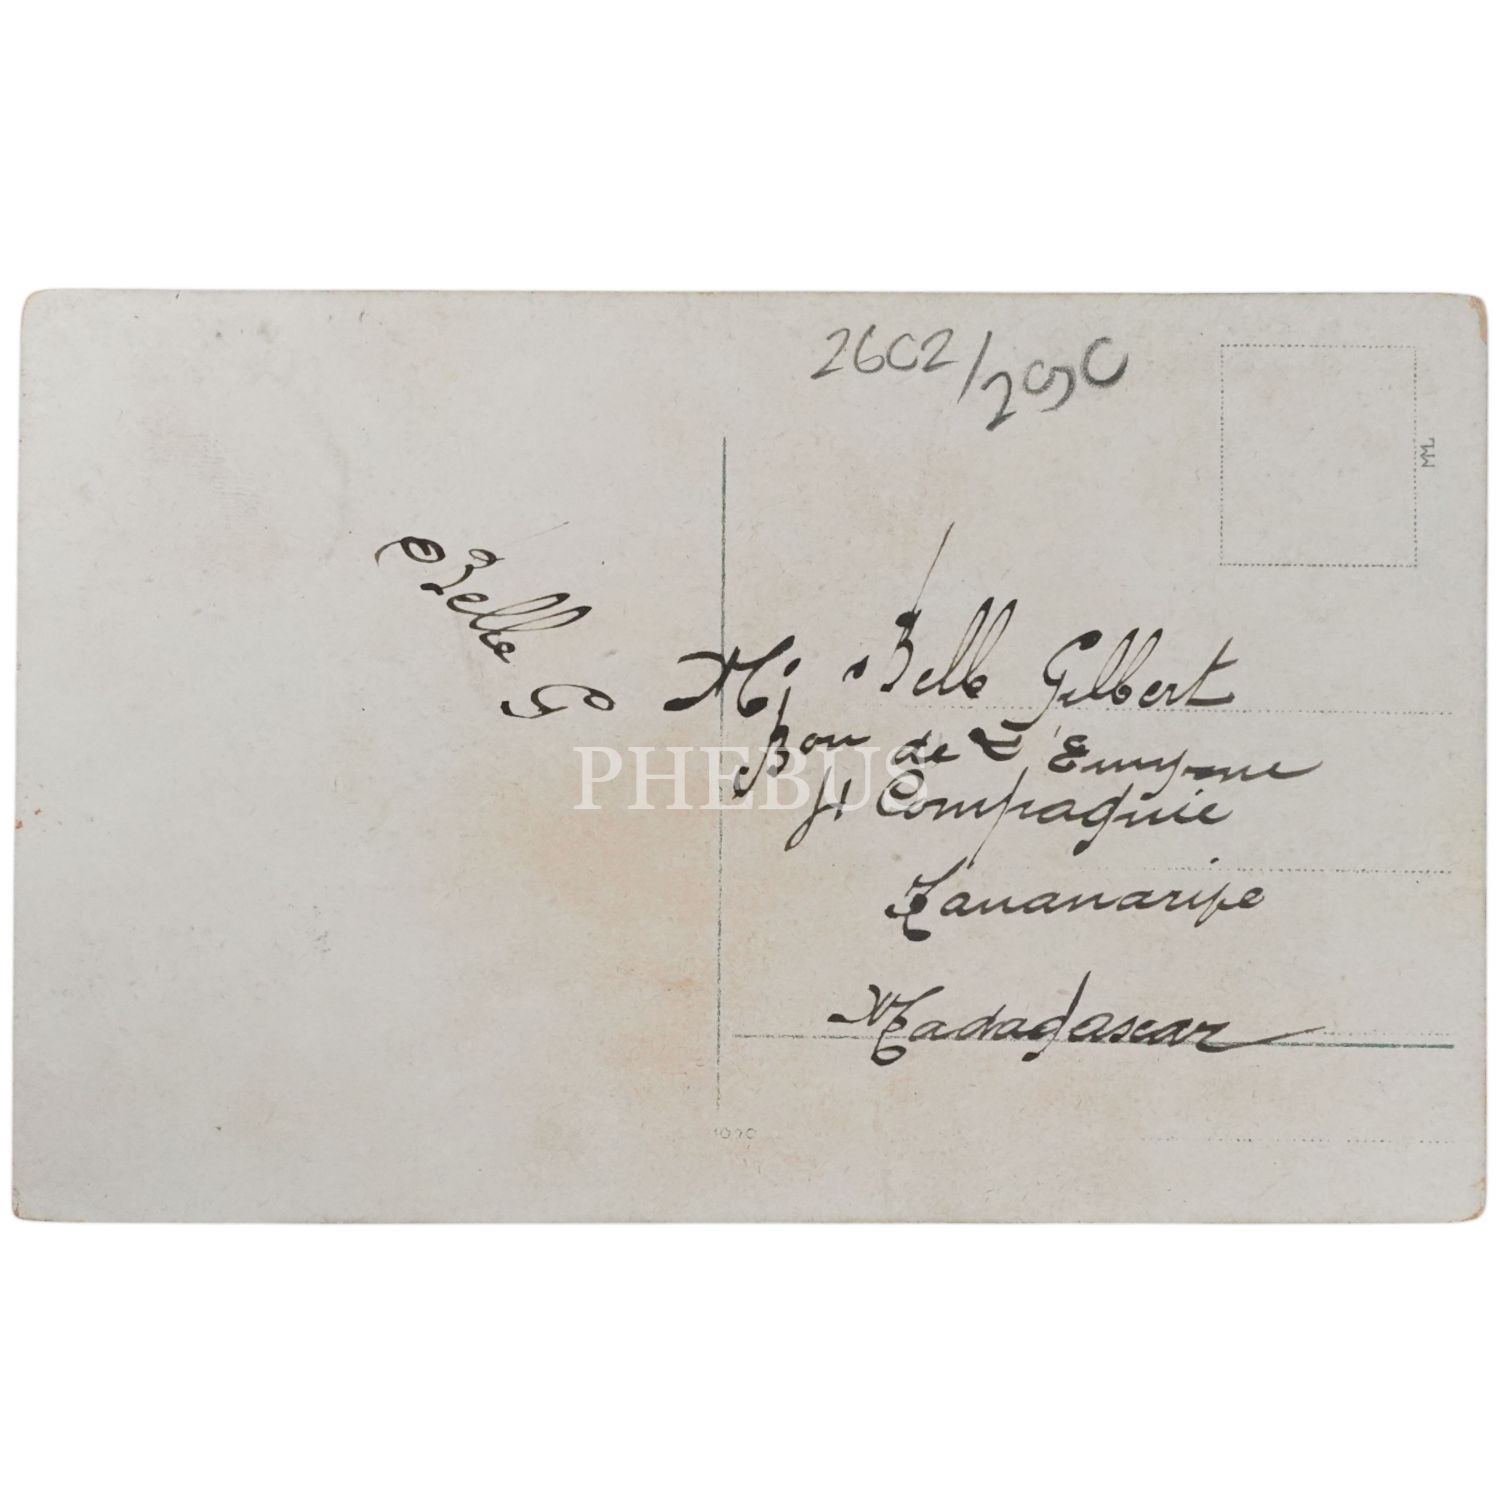 2602/2050
MML
Belle G
Mr Belle Gilbert
Bon de L'Emyrne
Ft Compagnie
Tananarive
Madagascar
PHEBUS